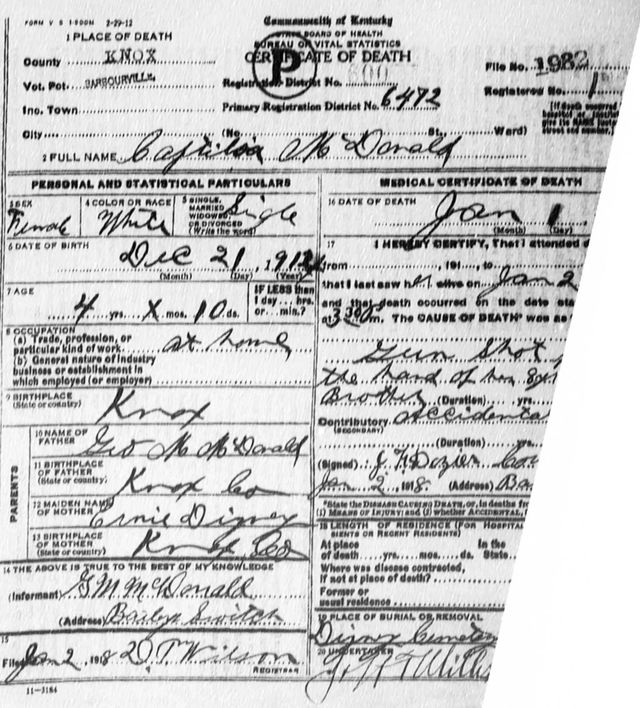 FORM V S 1-500M 2-29-12
Commonwealth of Kentucky
STATE BOARD OF HEALTH
BUREAU OF VITAL STATISTICS
CERTIFICATE OF DEATH
P
1 PLACE OF DEATH
County KNOX
Vot. Pct. BARBOURVILLE
Inc. Town
City
Registration District No. 600
Primary Registration District No. 6472
(No. St. Ward)
File No. 1982
Registered No. 1
[If death occurred
hospital or
give its NAME
street and number.]
2 FULL NAME McDonald
PERSONAL AND STATISTICAL PARTICULARS
3 SEX
Female
4 COLOR OR RACE
White
5 SINGLE,
MARRIED
WIDOWED
OR DIVORCED
(Write the word)
Single
6 DATE OF BIRTH
Dec 21, 191
(Month) (Day) (Year)
7 AGE
4 yrs. X mos. 10 ds.
IF LESS than
1 day... hrs.
or... min.?
8 OCCUPATION
(a) Trade, profession, or
particular kind of work at home
(b) General nature of industry
business or establishment in
which employed (or employer)
9 BIRTHPLACE
(State or country)
Knox
PARENTS
10 NAME OF
FATHER
Geo M McDonald
11 BIRTHPLACE
OF FATHER
(State or country)
Knox Co
12 MAIDEN NAME
OF MOTHER
13 BIRTHPLACE
OF MOTHER
(State or country)
Knox Co
14 THE ABOVE IS TRUE TO THE BEST OF MY KNOWLEDGE
(Informant) G.M. McDonald
(Address) Switch
15
Filed Jan 2, 1918 Wilson
REGISTRAR
11-3184
MEDICAL CERTIFICATE OF DEATH
16 DATE OF DEATH
Jan 1
(Month) (Day)
17 I HEREBY CERTIFY, That I attended d
from 191 , to
that I last saw her alive on Jan 2
and that death occurred on the date sta
at m. The CAUSE OF DEATH* was as
Gun Shot
the hand of her
Brother (Duration) yrs.
Contributory Accidental
(SECONDARY)
(Duration) yrs.
(Signed) Dozier Co
Jan 2, 1918. (Address) Ba
*State the DISEASE CAUSING DEATH, or, in deaths fr
(1) MEANS OF INJURY; and (2) whether ACCIDENTAL,
18 LENGTH OF RESIDENCE (FOR HOSPITAL
SIENTS OR RECENT RESIDENTS)
At place
of death yrs. mos. ds.
In the
State
Where was disease contracted,
if not at place of death?
Former or
usual residence
19 PLACE OF BURIAL OR REMOVAL
Cemetery
20 UNDERTAKER